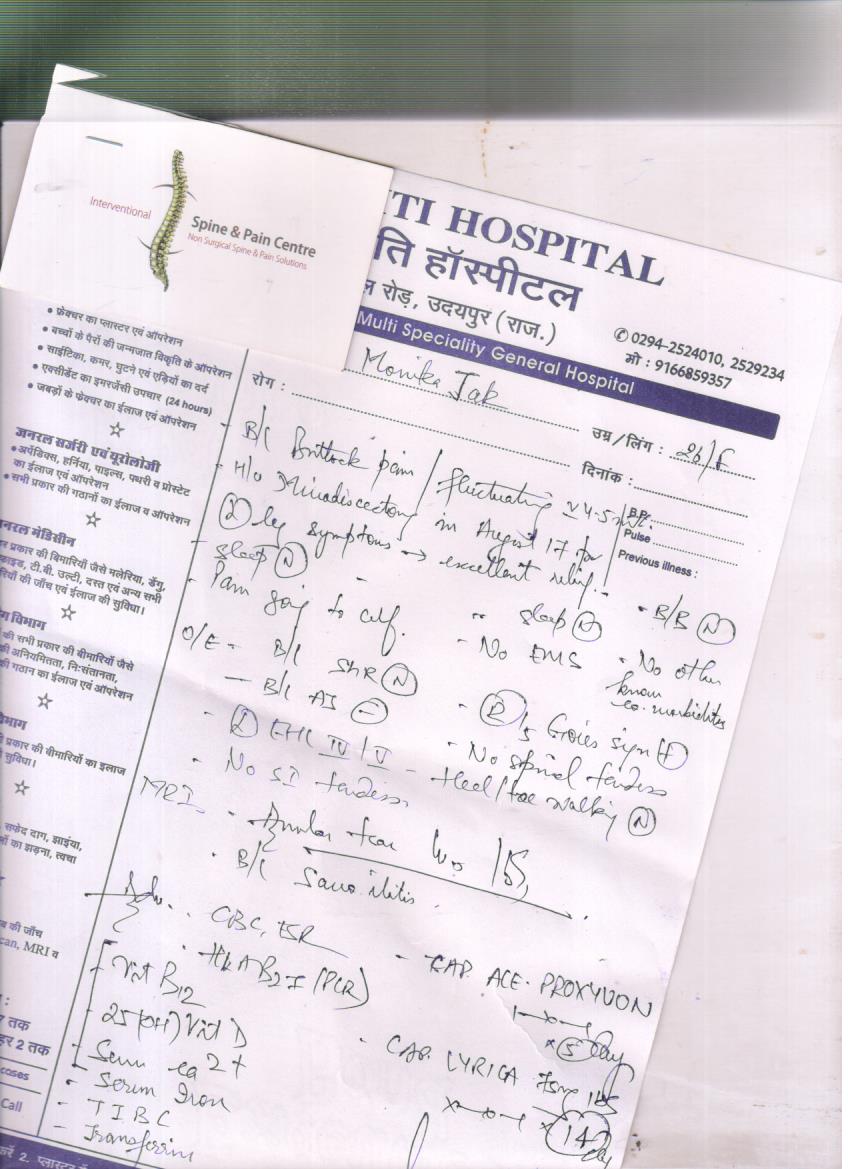 Interventional
Spine & Pain Centre
Non Surgical Spine & Pain Solutions
TI HOSPITAL
ति हॉस्पीटल
ल रोड़, उदयपुर (राज.)
✆ 0294-2524010, 2529234
मो : 9166859357
Multi Speciality General Hospital
• फ्रेक्चर का प्लास्टर एवं ऑपरेशन
• बच्चों के पैरों की जन्मजात विकृति के ऑपरेशन
• साइटिका, कमर, घुटने एवं एड़ियों का दर्द
• एक्सीडेंट का इमरजेंसी उपचार (24 hours)
• जबड़ों के फ्रेक्चर का ईलाज एवं ऑपरेशन
जनरल सर्जरी एवं यूरोलोजी
• अपेंडिक्स, हर्निया, पाइल्स, पथरी व प्रोस्टेट
का ईलाज एवं ऑपरेशन
• सभी प्रकार की गठानों का ईलाज व ऑपरेशन
नरल मेडिसीन
प्रकार की बिमारियाँ जैसे मलेरिया, डेंगू,
टी.बी. उल्टी, दस्त एवं अन्य सभी
की जाँच एवं ईलाज की सुविधा।
विभाग
की सभी प्रकार की बीमारियाँ जैसे
की अनियमितता, निःसंतानता,
की गठान का ईलाज एवं ऑपरेशन
विभाग
प्रकार की बीमारियों का इलाज
सुविधा।
सफेद दाग, झाइंया,
का झड़ना, त्वचा
ब की जाँच
can, MRI व
7 तक
हर 2 तक
Call
Monika
रोग :
उम्र / लिंग : 26/F
दिनांक :
B.P.
Pulse
Previous illness :
- B/L Buttock pain / fluctuating
- H/o Microdiscectomy in August 17 for
leg symptoms → excellent relief.
- Sleep (N)
- Pain going to calf.
- Sleep (N)
• B/B (N)
- No EMS
• No other
known
co-morbidities
O/E - B/L SLR (N)
- B/L AJ
sign (+)
- EHL IV/V
- No spinal tenderness
- No SI tenderness
- Heel/toe walking (N)
MRI - Annular tear
• B/L Sacroilitis.
Adv. • CBC, ESR
• HLA B27 (PCR)
Vit B12
- 25(OH) Vit D
- Serum Ca2+
- Serum Iron
- TIBC
- Transferrin
- CAP. ACE-PROXYVON
× 5 day
• CAP. LYRICA
× 14 day